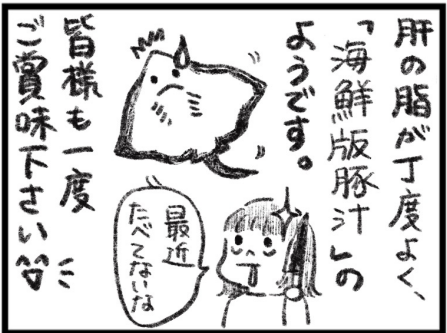 肝の脂が丁度よく、
「海鮮版豚汁」の
ようです。
皆様も一度
ご賞味下さい
最近
たべてないな